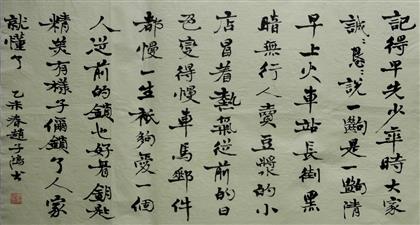 記得早先少年時大家
誠〻懇〻說一句是一句清
早上火車站長街黑
暗無行人賣豆漿的小
店冒着熱氣從前的日
色變得慢車馬郵件
都慢一生衹夠愛一個
人從前的鎖也好看鑰匙
精美有樣子儞鎖了人家
就懂了 乙未春趙子鴻書